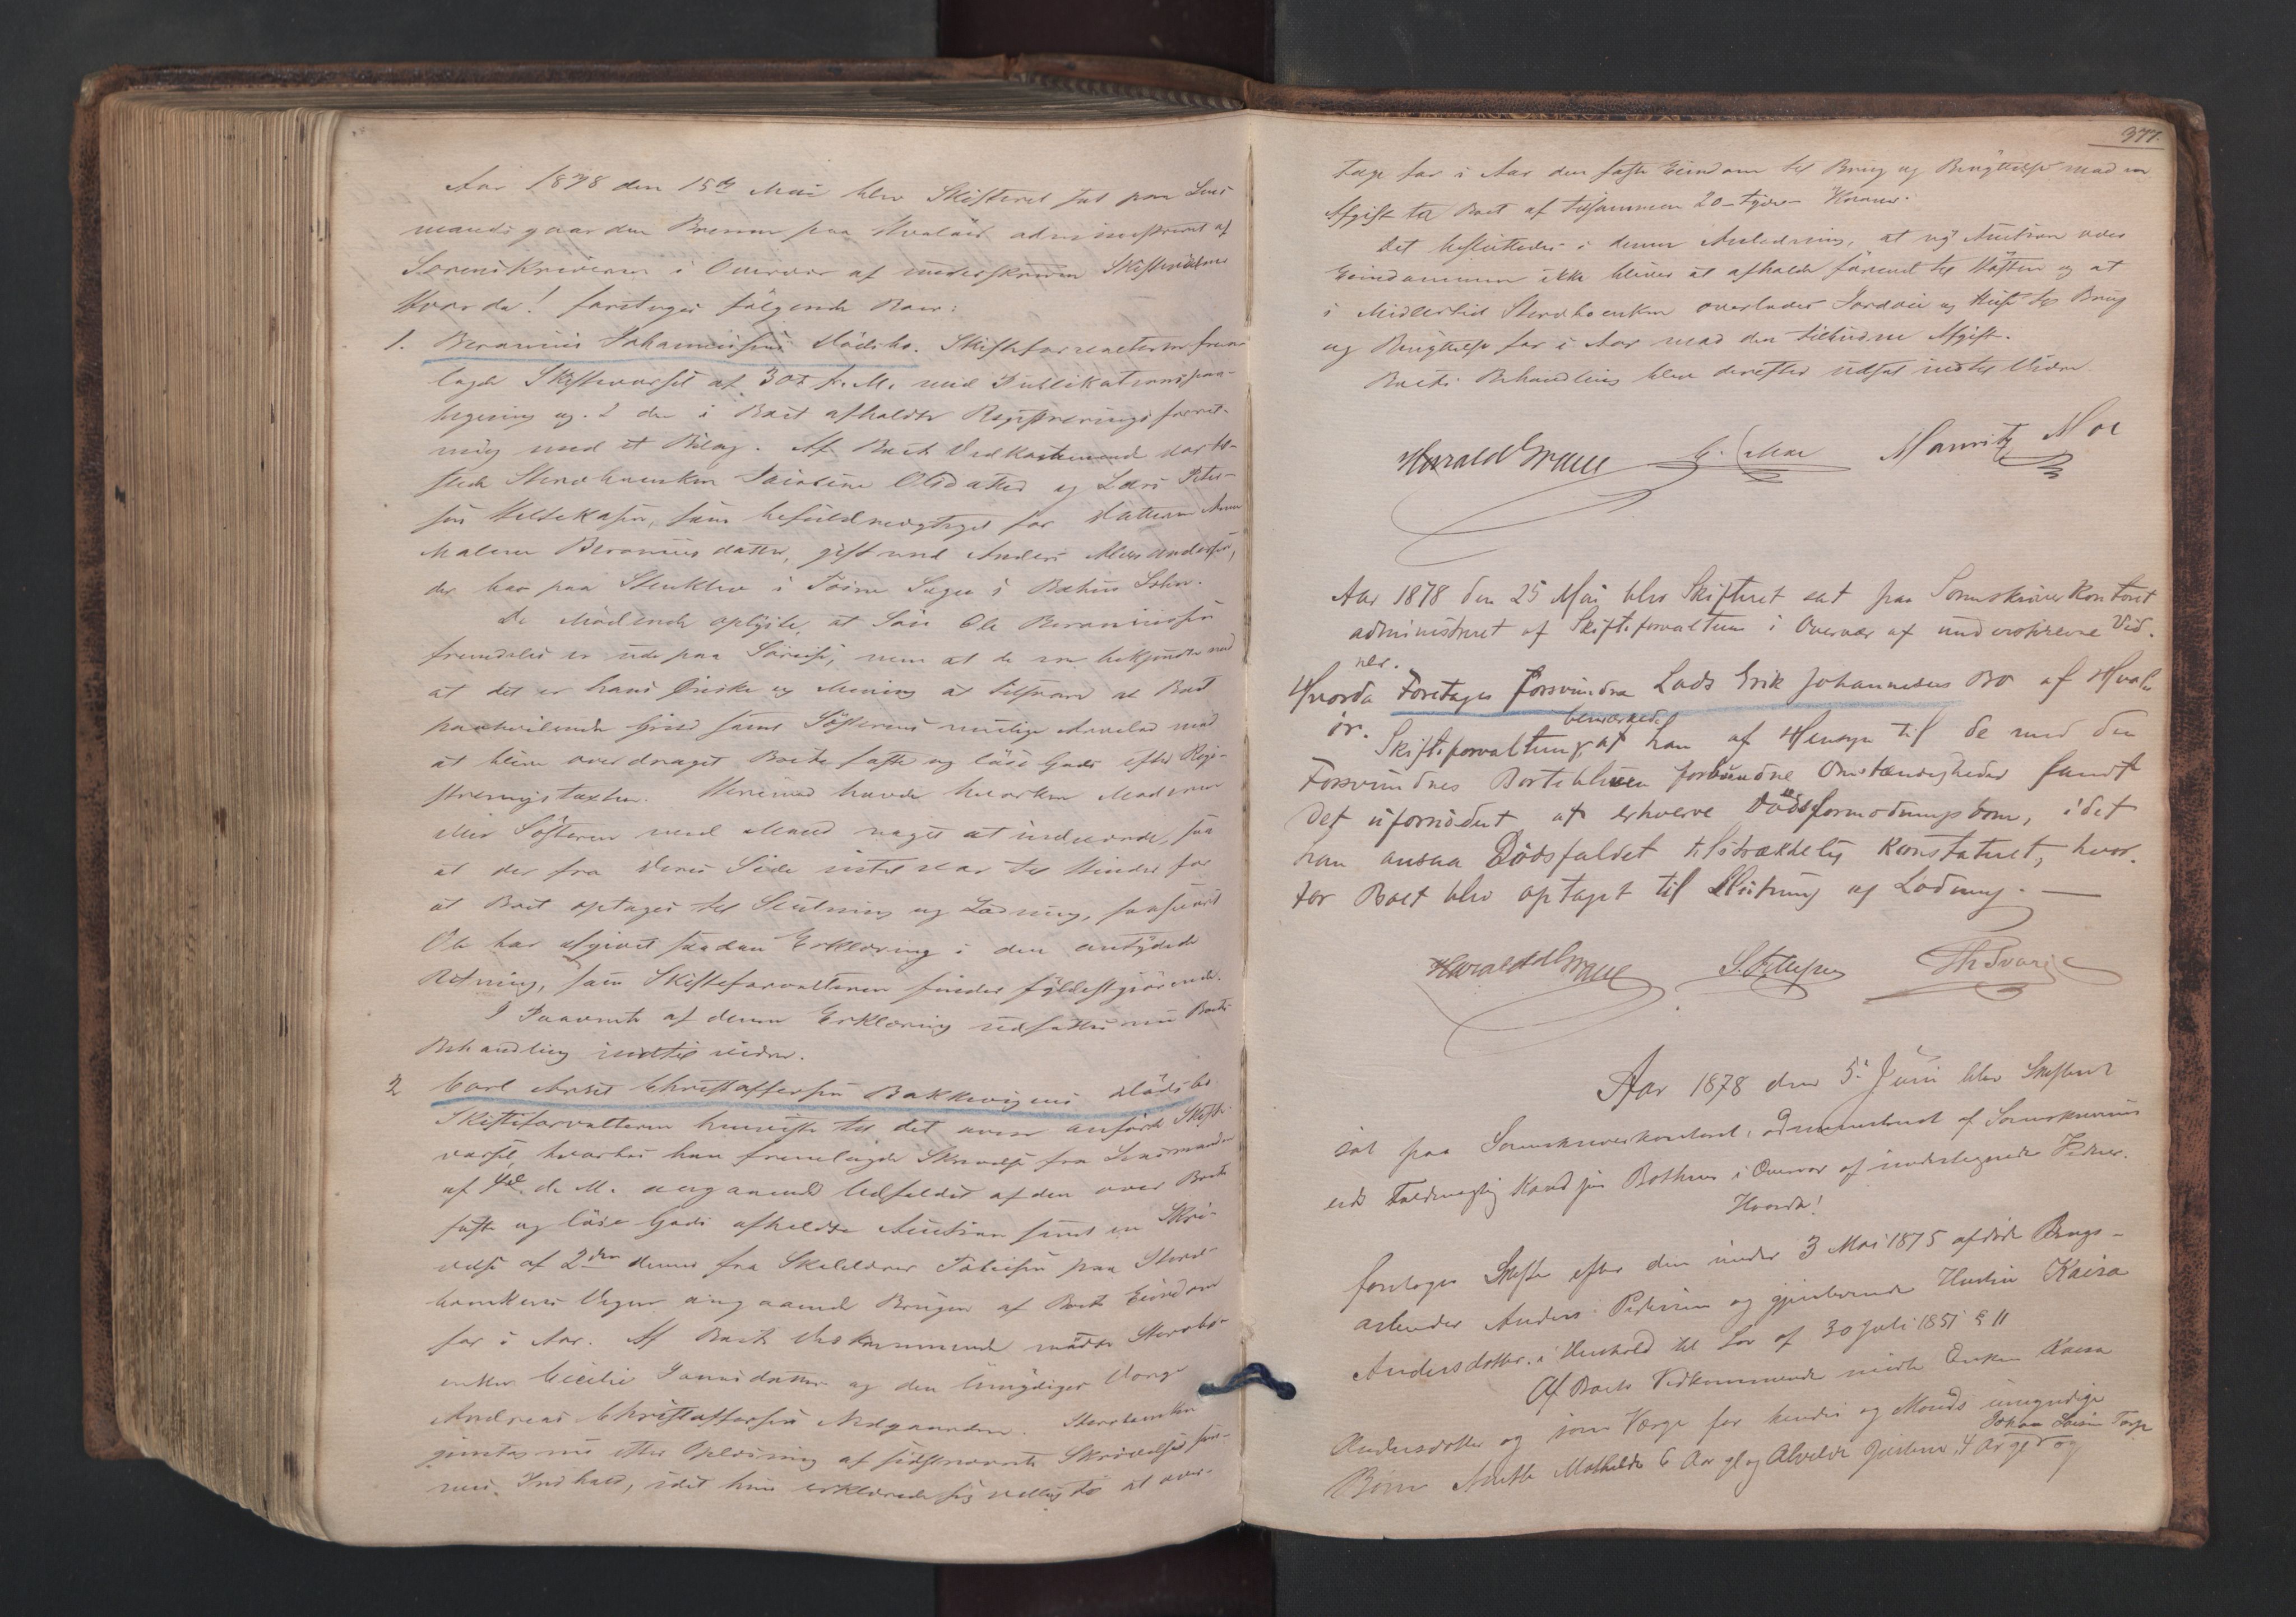 Aar 1878 den 15de Mai blev Skifteret sat paa Lens-
mandsgaarden Brenne paa Hvalöer administreret af
Sorenskriveren i Overvær af underskrevne Skiftevidner
Hvorda! foretoges følgende Boer:
1. Beramius Johannessens Dödsbo. Skifteforvalteren frem-
lagde Skiftevarsel af 30te f. M. med Publikationspaa-
tegning og 2 den i Boet afholdte Registreringsforret-
ning med et Bilag. Af Boets Vedkommende var til-
stede Stervboenken Olsdatter og Lars Peter-
sen som befuldmægtiget for Datteren Anne
Malene Beramiusdatter, gift med Anders Alexandersen,
der bor paa i Sogn i Bahus Lehn.
De Mödende oplyste, at Sön Ole Beramiussen
fremdeles er ude paa Söreise, men at de ere bekjendte med
at det er hans Önske og Mening at tilsvare al Boet
paahvilende Gjeld samt Söstrenes mulige Arvelod mod
at blive overdraget Boets faste og löse Gods efter Regi-
streringstaxten. Herimod havde hverken Moderen
eller Sösteren med Mand noget at indvende, saa
at der fra deres Side intet var til Hinder for
at Boet optages til Slutning og Lodning, saasnart
Ole har afgivet saadan Erklæring i den antydede
Retning, som Skifteforvalteren finder fyldestgjörende.
I Paavente af denne Erklæring udsattes nu Boets
Behandling indtil videre.
2 Carl Anset Christoffersen Bakkevigens Dödsbo
Skifteforvalteren henviste til det ovenanförte Skifte-
varsel, hvorhos han fremlagde Skrivelse fra Lensmanden
af 4de d. M. angaaende Udfaldet af den over Boets
faste og löse Gods afholdte Auktion samt en Skri-
velse af 2den dennes fra Skoleholder paa Stervbo-
enkens Vegne angaaende Brugen af Boets Eiendom
for i Aar. Af Boets Vedkommende mödte Stervbo-
enken Cecilie og den Umyndiges Værge
Andreas Christoffersen Nedgaarden. Stervboenken
gjentog nu efter Oplæsning af sidstnævnte Skrivelse sam-
mes Indhold, idet hun erklærede sig villig til at over-
377.
tage for i Aar den faste Eiendom til Brug og Benyttelse mod en
Afgift til Boet af tilsammen 20 – tyve – Kroner.
Det besluttedes i denne Anledning, at ny Auktion over
Eiendommen ikke bliver at afholde förend til Hösten og at
i Midlertid Stervboenken overlades Jordvei og Huse til Brug
og Benyttelse for i Aar mod den tilbudne Afgift.
Boets Behandling blev derefter udsat indtil Videre.
Harald Graae G. Moe Mauritz Moe
Aar 1878 den 25 Mai blev Skifteret sat paa Sorenskriverkontoret
administreret af Skifteforvalteren i Overvær af underskrevne Vid-
ner.
Hvorda Foretages forsvundne Lods Erik Johannesens Bo af Hval-
ör.
bemærkede
Skifteforvalteren at han af Hensyn til de med den
Forsvundnes Bortebliven forbundne Omstændigheder fandt
det ufornödent at erhverve Dödsformodningsdom, idet
han ansaa Dödsfaldet tilstrækkelig konstateret, hvor-
for Boet blev optaget til Slutning og Lodning. —
Harald Graae
Aar 1878 den 5. Juni blev Skifteret
sat paa Sorenskriverkontoret, administreret af Sorenskriverens
ed. Fuldmægtig Kand. jur. Bothner i Overvær af undertegnede Vidner.
Hvorda!
foretoges Skifte efter den under 3 Mai 1875 afdöde Brugs-
arbeider Anders Pedersen og gjenlevende Hustru Kaisa
Andersdatter. i Henhold til Lov af 30 Juli 1851 § 11
Af Boets Vedkommende mödte Enken Kaisa
Andersdatter og som Værge for hendes og Mands umyndige
Johan Torp
Börn Anette Mathilde 6 Aar gl. og Alvilde 4 Ar gl. og